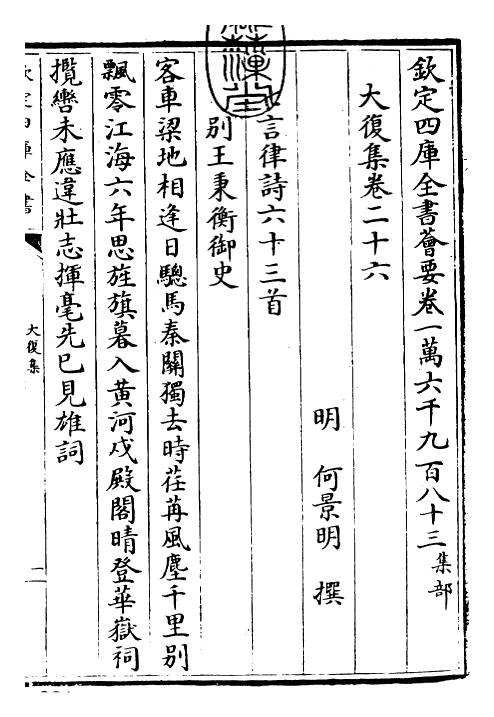 欽定四庫全書薈要卷一萬六千九百八十三集部
大復集卷二十六
明 何景明 撰
言律詩六十三首
別王秉衡御史
客車梁地相逢日驄馬秦關獨去時荏苒風塵千里別
飄零江海六年思旌旗暮入黃河戍殿閣晴登華嶽祠
攬轡未應違壯志揮毫先已見雄詞
欽定四庫全書
大復集